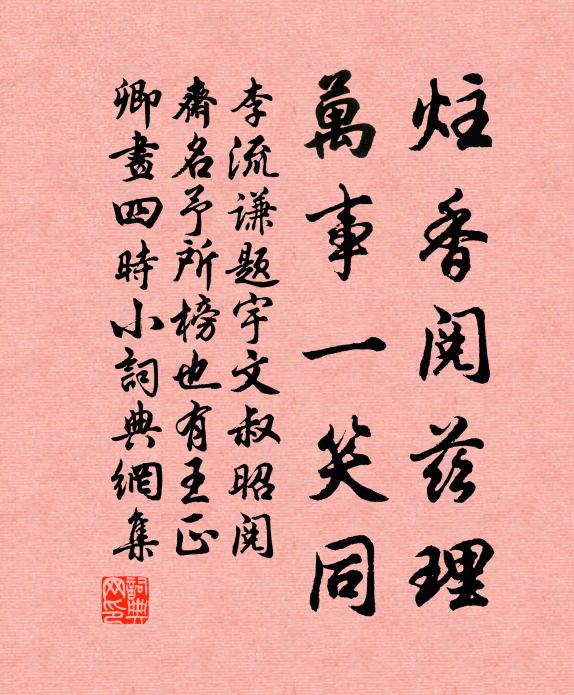 炷香閱茲理
萬事一笑同
李流谦题宇文叔昭閱
齋名予所榜也有王正
卿畫四時小詞典網集
詞典
网印